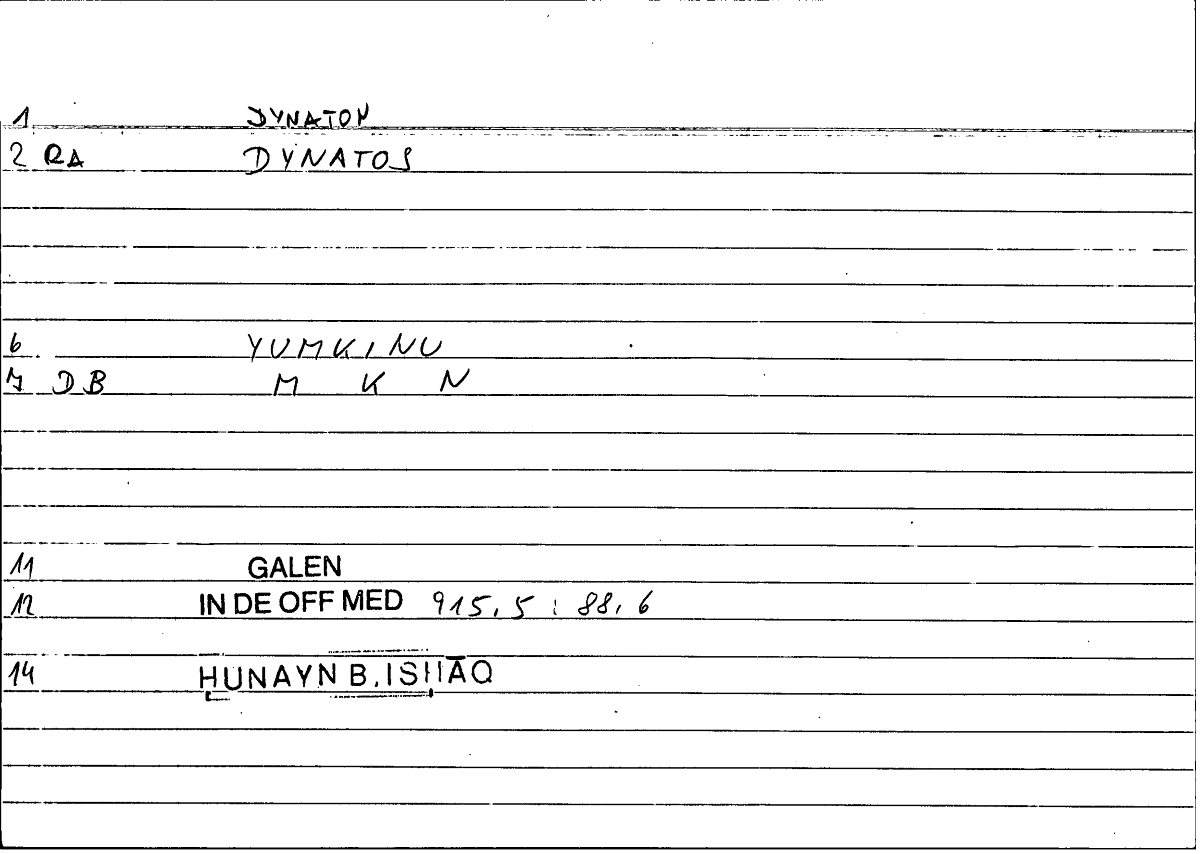 1 DYNATON
2 RA DYNATOS
6 YUMKINU
7 DB M K N
11 GALEN
12 IN DE OFF MED 915,5 : 88,6
14 HUNAYN B. ISHĀQ